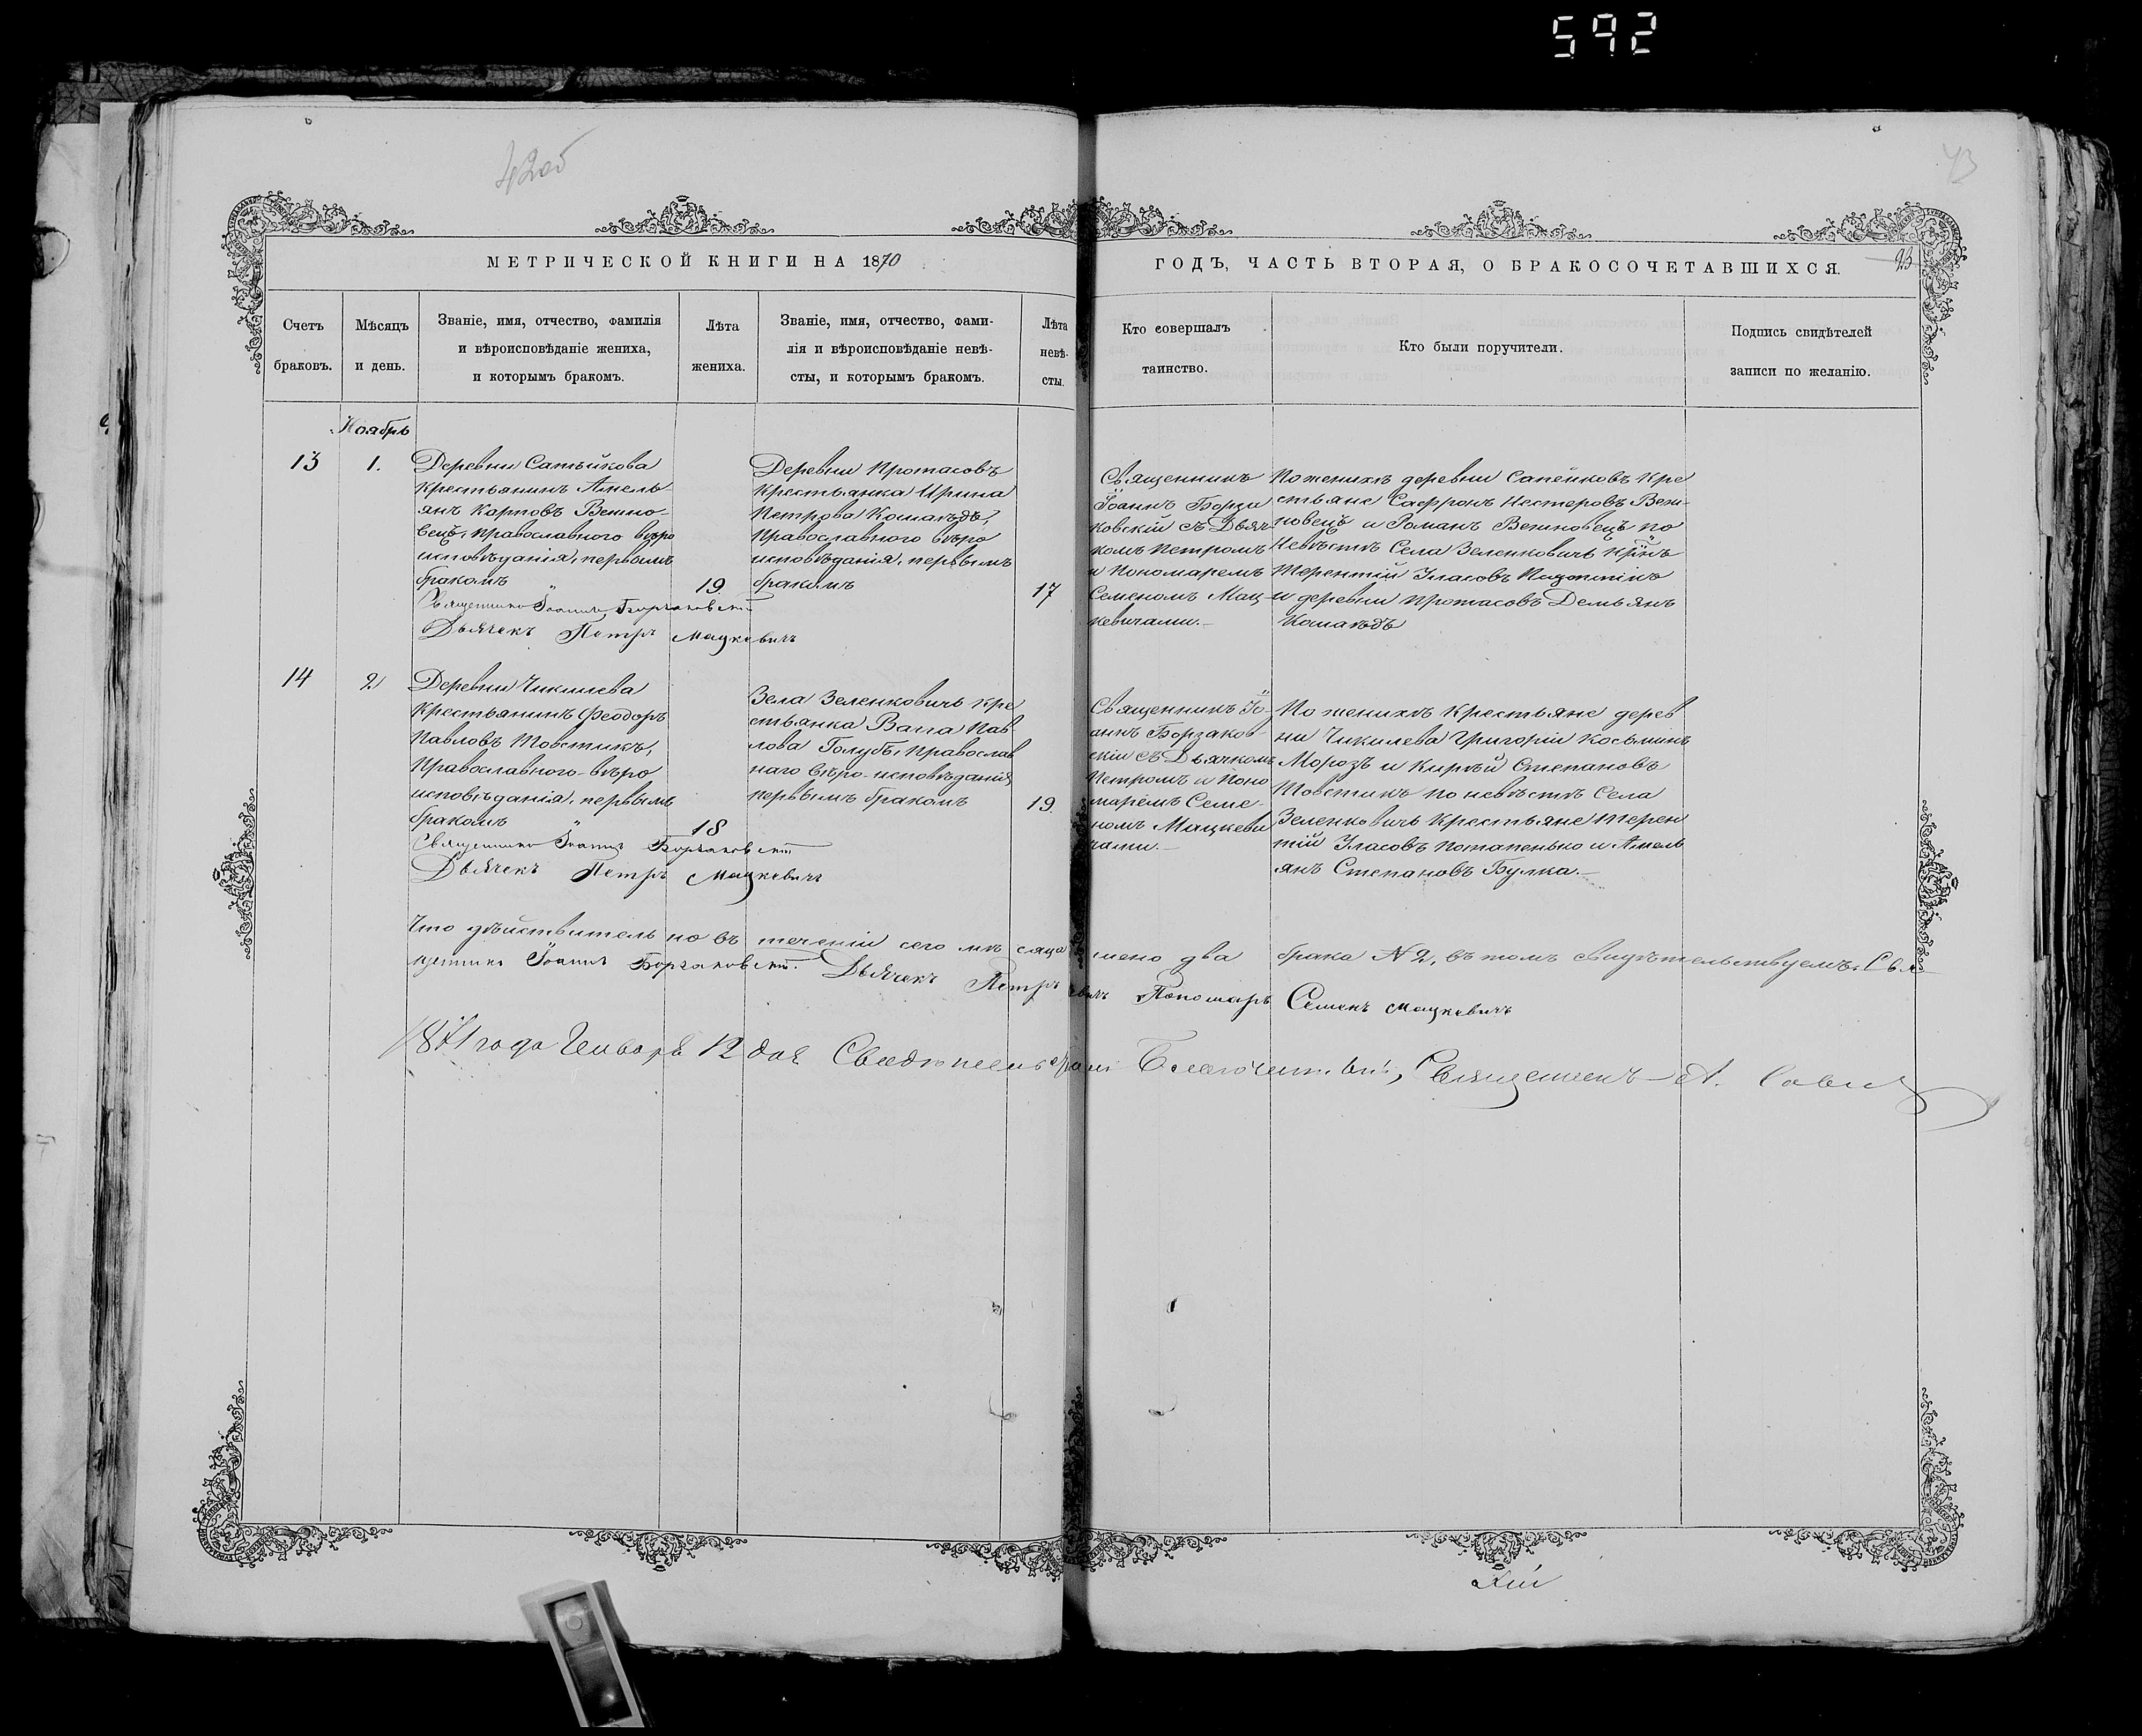 592
42об
43
МЕТРИЧЕСКОЙ КНИГИ НА 1870
ГОДЪ, ЧАСТЬ ВТОРАЯ, О БРАКОСОЧЕТАВШИХСЯ.
Счетъ
браковъ.
Мѣсяцъ
и день.
Званіе, имя, отчество, фамилія
и вѣроисповѣданіе жениха,
и которымъ бракомъ.
Лѣта
жениха.
Званіе, имя, отчество, фами-
лія и вѣроисповѣданіе невѣ-
сты, и которымъ бракомъ.
Лѣта
невѣ-
сты.
Кто совершалъ
таинство.
Кто были поручители.
Подпись свидѣтелей
записи по желанію.
Ноябрь
13
1.
Деревни
Крестьянинъ Амель
янъ Карповъ
Православного вѣро
исповѣданія, первымъ
бракомъ
19
Деревни Протасовъ
Крестьянка Ирина
Петрова
Православного вѣро
исповѣданія, первымъ
бракомъ
17
Священникъ
Іоаннъ Борза
ковскій съ Дьяч
комъ Петромъ
и Пономаремъ
Семеномъ Мац
кевичами.
По женихѣ деревни Сапейковъ Кре
стьяне Сафронъ Нестеровъ
и Романъ по
Невѣстѣ Села Зеленковичъ
Терентій Власовъ
и деревни Протасовъ Демьянъ
Священникъ Іоаннъ Борзаковскій
Дьячекъ Петръ Мацкевичъ
14
2
Деревни Чикилева
Крестьянинъ Феодоръ
Павловъ Товстикъ,
Православного вѣро
исповѣданія, первымъ
бракомъ
18
Села Зеленковичъ кре
стьянка Васа Пав
лова Голубъ, Православ
наго вѣро-исповѣданія
первымъ бракомъ
19.
Священникъ Іо-
аннъ Борзаков
скій съ Дьячкомъ
Петромъ и Поно
маремъ Семе-
номъ Мацкеви
чами.
По женихѣ Крестьяне дерев
ни Чикилева Григорій Косьминъ
Морозъ и Кирѣй Степановъ
Товстикъ по невѣстѣ Села
Зеленковичъ Крестьяне Терен
тій Власовъ Потапенько и Амель
янъ Степановъ Булка.
Священникъ Іоаннъ Борзаковскій
Дьячекъ Петръ Мацкевичъ
Что дѣйствительно въ теченіи сего мѣсяца два брака N 2, въ томъ свидѣтельствуемъ. Свя
щенникъ Іоаннъ Борзаковскій. Дьячекъ Петръ Пономарь Семенъ Мацкевичъ
1871 года Генваря 12 дня Благочинный, Священникъ А.